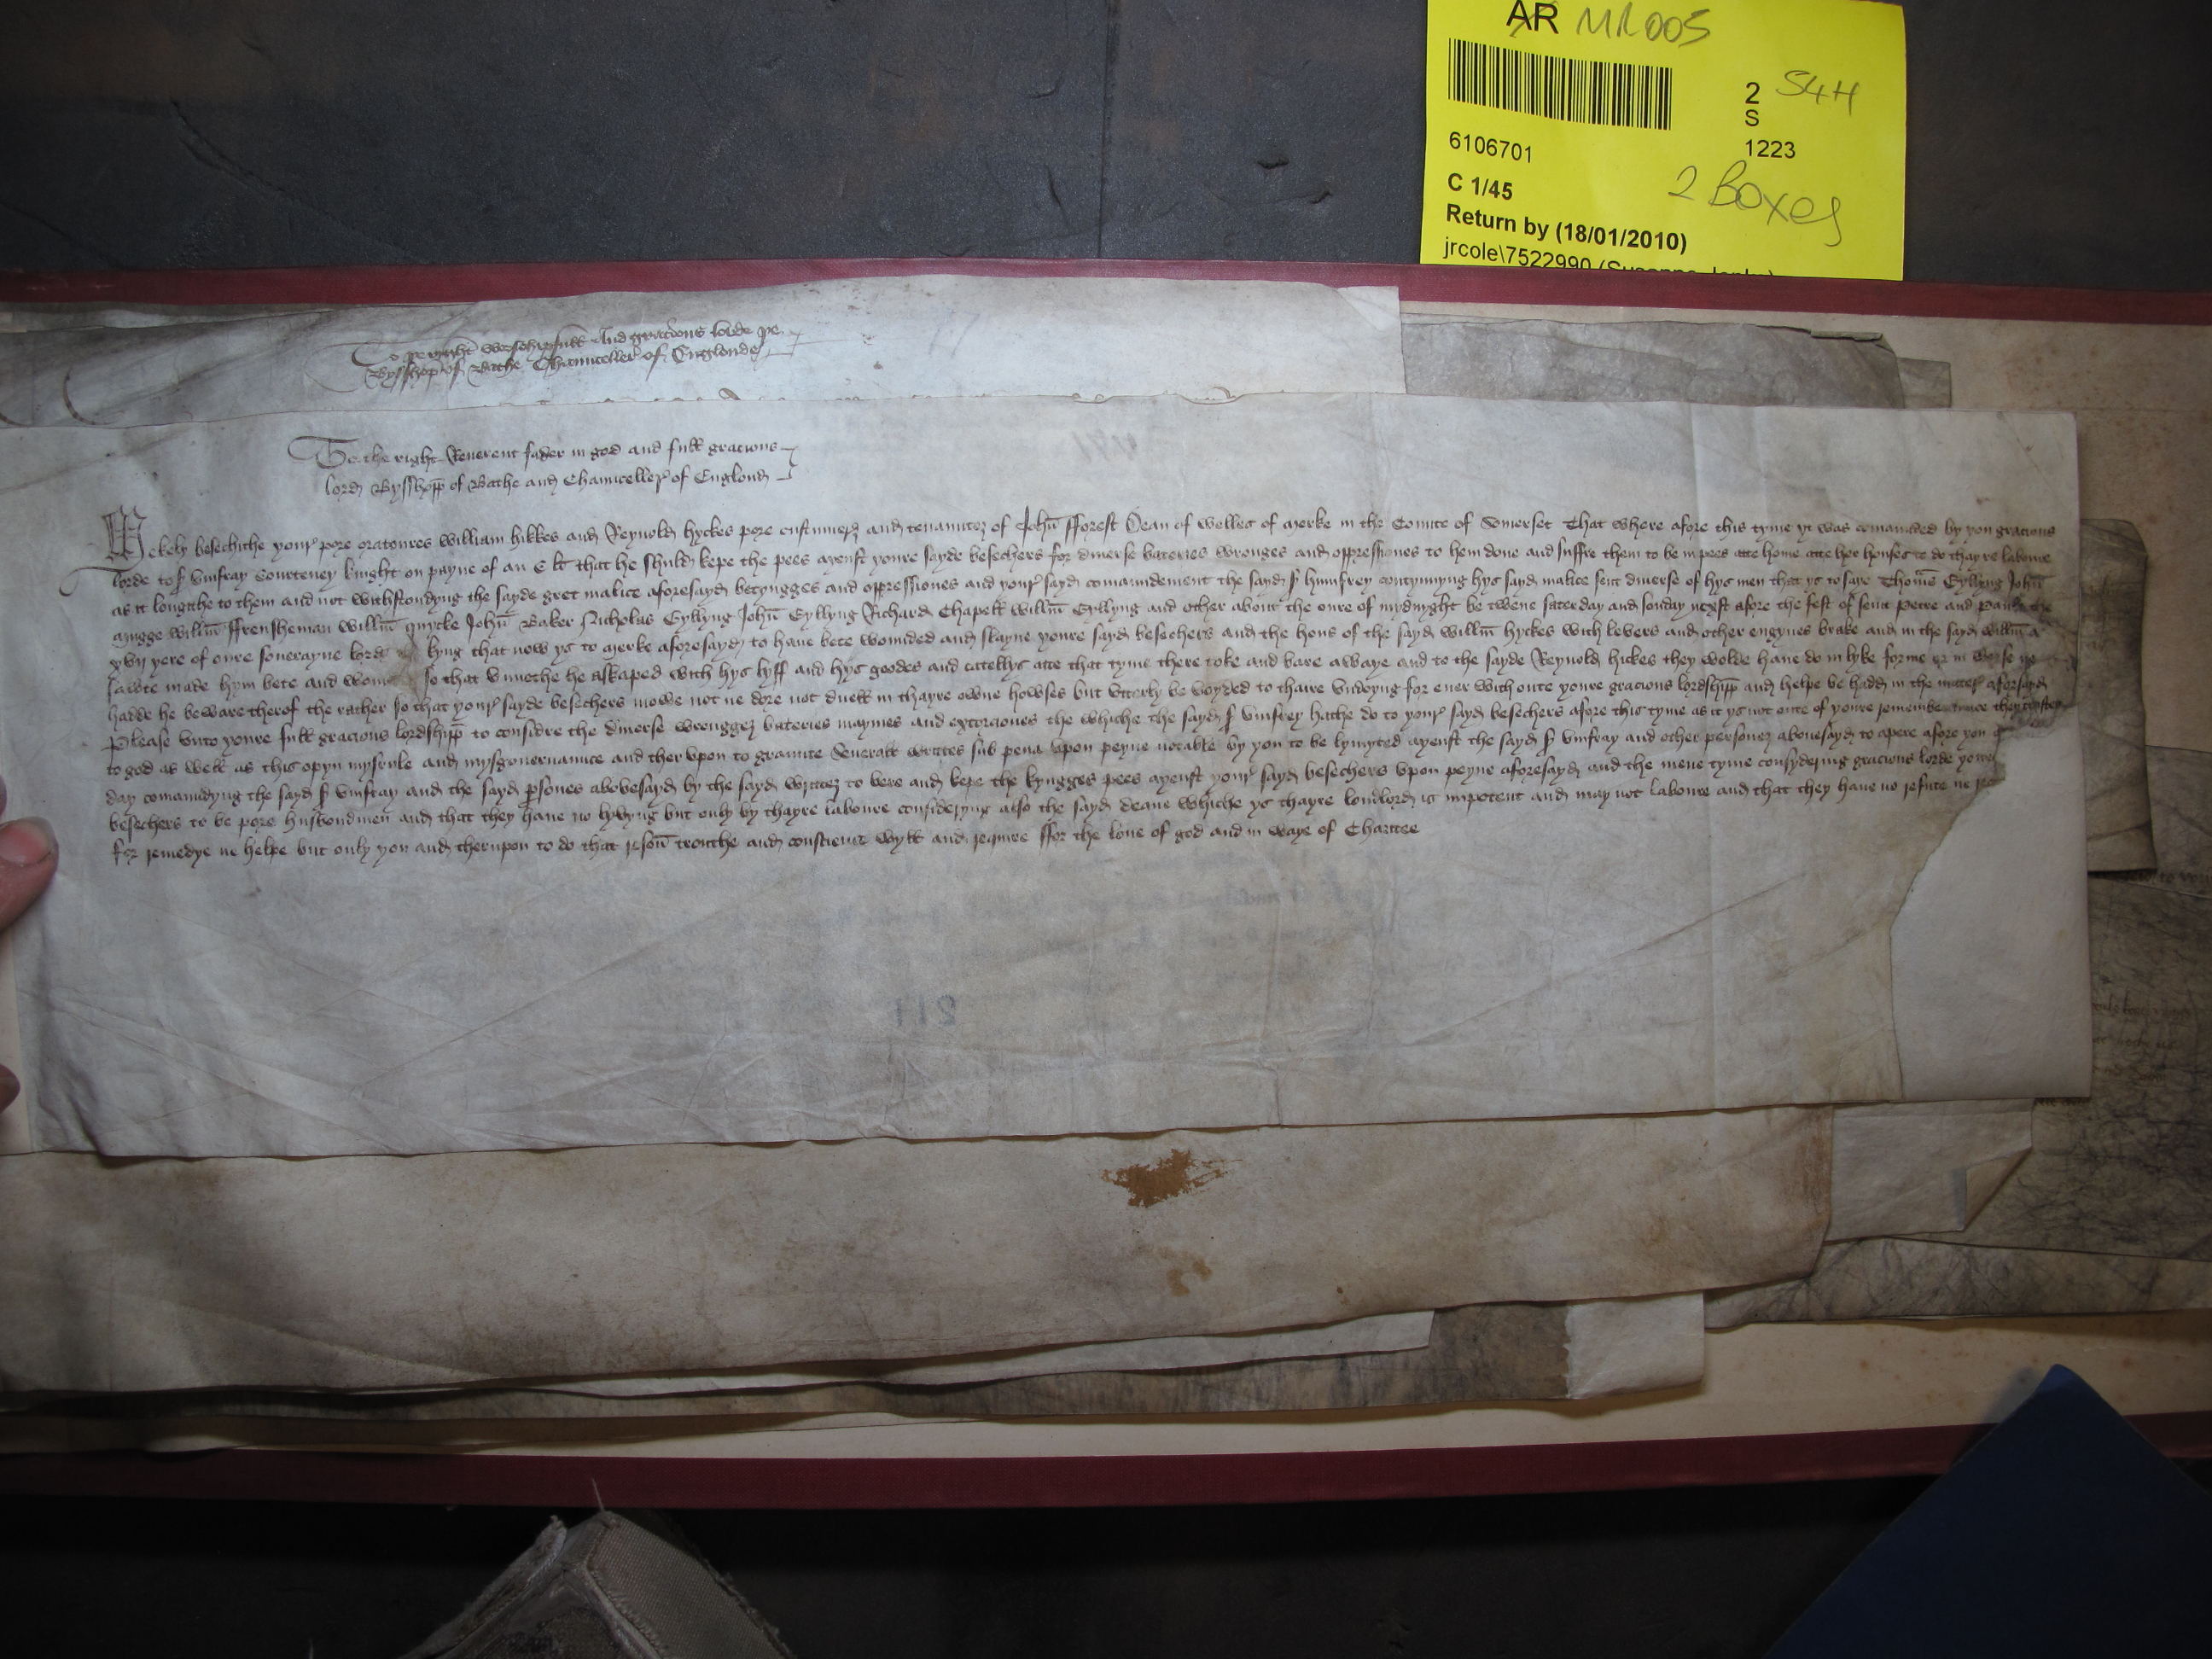 AR MR005
2 S4H
S
6106701
1223
C 1/45
2 Boxes
Return by (18/01/2010)
jrcole\7522990
To þe right worschipfull And gracious lorde þe
Bysshop of Bathe Chaunceller of Englonde
To the right Reuerent fader in god and full gracious
lord Bysshopp of Bathe and Chaunceller of Englond
Mekely besechithe your pore oratoures william hikkes and Reynold hyckes pore custumerz and tenauntez of Johñ fforest Dean of welles of merke in the Comite of Somerset That where afore this tyme yt was comaunded by you gracious
lorde to sr Vmfray Courteney knight on payne of an C li that he shuld kepe the pees ayenst youre sayde besechers for diuerse bateries wronges and oppressiones to hem done and suffre them to be in pees atte home atte her houses to do thayre laboure
as it longithe to them and not withstondyng the sayde gret malice aforesayd betyngges and oppressiones and your sayd comaundement the sayd sr humfrey contynuyng hys sayd malice sent diuerse of hys men that ys to saye Thom̃s Gyllyng Johñ
mugge willm̃ ffrensheman willm̃ quycke Johñ Baker Nicholas Gyllyng Johñ Gyllyng Richard Chapell willm̃ Gyllyng and other about the oure of mydnyght be twene saterday and sonday next afore the fest of seint Petre and Paule the
xvij yere of oure souerayne lord kyng that now ys to merke aforesayd to haue bete wounded and slayne youre sayd besechers and the hous of the sayd willm̃ hyckes with levers and other engynes brake and in the sayd willm̃ a
sawte made hym bete and so that vnnethe he askaped with hys lyff and hys goodes and catellys atte that tyme there toke and bare awaye and to the sayde Reynold hickes they wolde haue do in lyke forme or in worse ne
hadde he beware therof the rather so that your sayde besechers mowe not ne dore not duell in thayre owne howses but vtterly be voyded to thaire vndoyng for euer with oute youre gracious lordshipp and helpe be hadd in the mater aforsayd
Please vnto youre full gracious lordshipp to considre the diuerse wronggez bateries maymes and extorciones the whiche the sayd sr vmfrey hathe do to your sayd besechers afore this tyme as it ys not oute of youre they troste
to god as well as this opyn mysrule and mysgouernaunce and ther vpon to graunte Seuerall writtes sub pena upon peyne notable by you to be lymyted ayenst the sayd sr vmfray and other personez abouesayd to apere afore you
day comaundyng the sayd sr vmfray and the sayd psones abovesayd by the sayd writtez to bere and kepe the kyngges pees ayenst your sayd besechers vpon peyne aforesayd and the mene tyme consydering gracious lorde youre
besechers to be pore husbondmen and that they haue no lyvyng but only by thayre laboure consideryng also the sayd deane whiche ys thayre londlord is impotent and may not laboure and that they haue no refute ne
for remedye ne helpe but only you and therupon to do that resoñ trouthe and conscience wyll and requires ffor the loue of god and in waye of Charitee
211